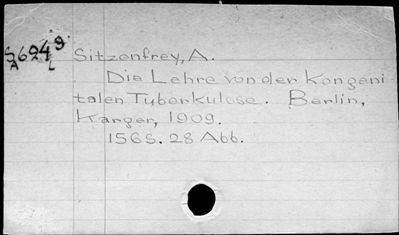 S6949
A L
Sitzenfrey, A.
Die Lehre von der Kongeni
talen Tuberkulose. Berlin,
Karger, 1909.
156S. 28 Abb.